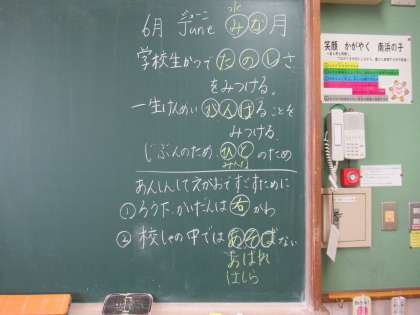 水
ジューン
6月 June みな月
学校生かつで たのしさ
をみつける。
一生けんめい がんばることを
みつける。
じぶんのため ひとのため
みんな
あんしんして えがおですごすために
①ろうか、かいだんは右がわ
②校しゃの中では あそばない
あばれ
はしら
笑顔 かがやく 南浜の子